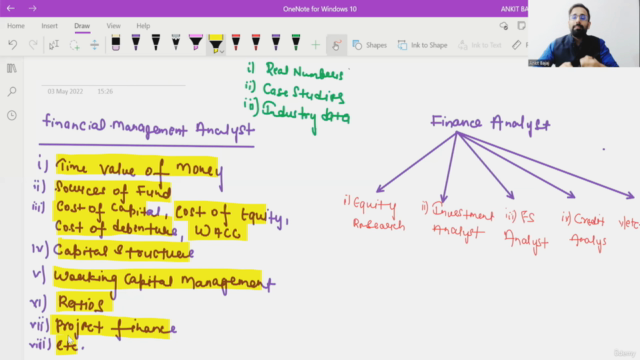 OneNote for Windows 10
ANKIT BA
Home
Insert
Draw
View
Shapes
Ink to Shape
Ink to Text
03 May 2022 15:26
i) Real Numbers
ii) Case Studies
iii) Industry data
Financial Management Analyst
i) Time value of Money
ii) Sources of Fund
iii) Cost of Capital, Cost of Equity,
Cost of debenture, WACC
iv) Capital Structure
v) Working Capital Management
vi) Ratios
vii) Project finance
viii) etc.
Finance Analyst
i) Equity
Research
ii) Investment
Analyst
iii) FS
Analyst
iv) Credit
Analys
v) etc
Ankit Bajaj
Udemy